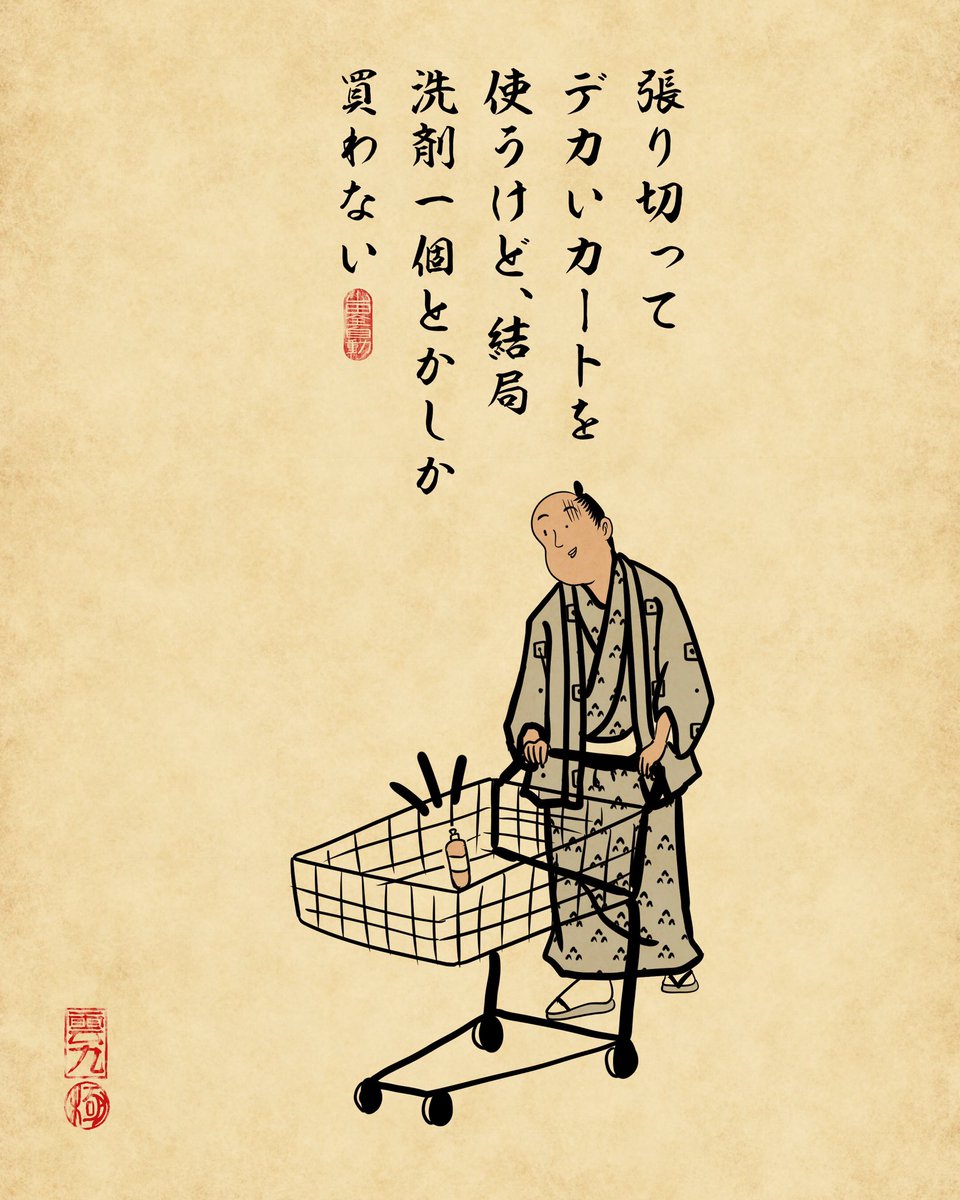 張り切って
デカいカートを
使うけど、結局
洗剤一個とかしか
買わない